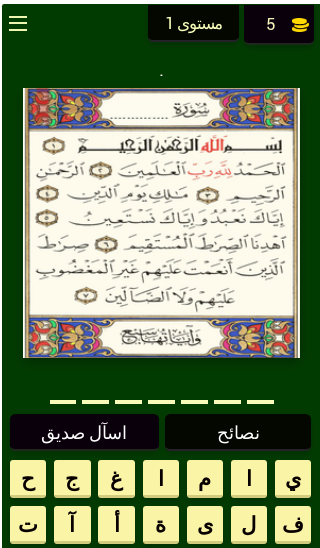 مستوى 1
5
سورة ..............
بسم الله الرحمن الرحيم ١
الحمد لله رب العلمين ٢ الرحمن
الرحيم ٣ ملك يوم الدين ٤
إياك نعبد وإياك نستعين ٥
اهدنا الصرط المستقيم ٦ صرط
الذين أنعمت عليهم غير المغضوب
عليهم ولا الضالين ٧
وآياتها سبع
اسآل صديق
نصائح
ي ا م ا غ ج ح
ف ل ى ة أ آ ت